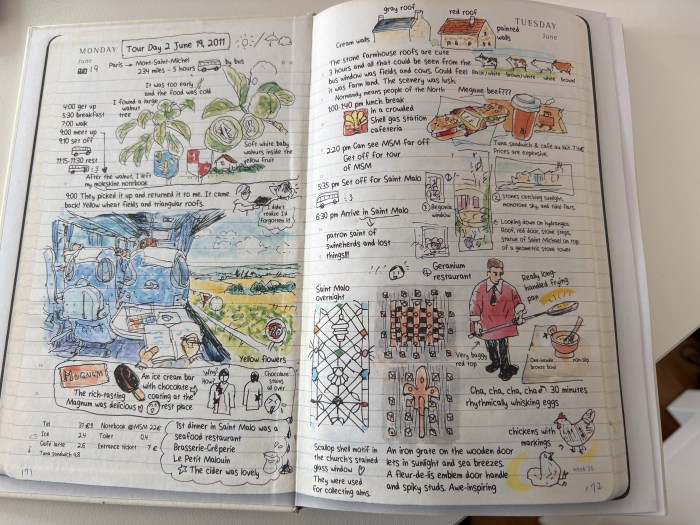 MONDAY
June
19
Tour Day 2 June 19, 2011
Paris → Mont-Saint-Michel
234 miles - 5 hours by bus
It was too early
and the food was cold
4:00 get up
5:30 breakfast
7:00 walk
9:00 meet up
9:10 set off
11:15-11:30 rest
I found a large
walnut
tree
Soft white baby
walnuts inside the
yellow fruit
After the walnut, I left
my moleskine notebook
9:00 They picked it up and returned it to me. It came
back! Yellow wheat fields and triangular roofs.
I didn't
realize I'd
forgotten it
Yellow flowers
MAGNUM
An ice cream bar
with chocolate
The rich-tasting coating at the
Magnum was delicious rest place
Why?
How?
Chocolate
stains
all over
Tel
Ice 2.4
Café latte 2.6
Tuna sandwich 4.8
Notebook @MSM 22€
Toilet 0.4
Entrance ticket 7€
1st dinner in Saint Malo was a
seafood restaurant
Brasserie-Crêperie
Le Petit Malouin
The cider was lovely
171
TUESDAY
June
gray roof
red roof
Cream walls
painted
walls
The stone farmhouse roofs are cute
3 hours and all that could be seen from the
bus window was fields and cows. Could feel
it was farm land. The scenery was lush.
Normandy means people of the North
Black/white brown/white white brown
Megane beef???
1:00-1:40 pm lunch break
in a crowded
Shell gas station
cafeteria
Tuna sandwich & café au lait
Prices are expensive.
2:20 pm Can see MSM far off
Get off for tour
of MSM
5:35 pm Set off for Saint Malo
6:30 pm Arrive in Saint Malo
patron saint of
swineherds and lost
things!!!
③ Begonia
window
② Stones catching sunlight,
Looking down on hydrangea.
Roof, red door, stone steps,
statue of Saint Michael on top
of a geometric stone tower
④ Geranium
restaurant
Saint Malo
overnight
Really long-
handled frying
pan
Very baggy
red top
One-handle
bronze bowl
non-slip
Cha, cha, cha, cha♪ 30 minutes
rhythmically whisking eggs
chickens with
markings
Scallop shell motif in
the church's stained
glass window ♡
They were used
for collecting alms.
An iron grate on the wooden door
lets in sunlight and sea breezes.
A fleur-de-lis emblem door handle
and spiky studs. Awe-inspiring
172